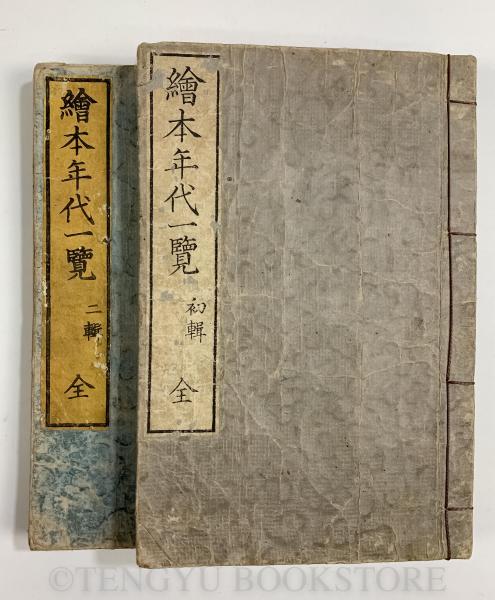 繪本年代一覽
初輯
全
繪本年代一覽
二輯
全
©TENGYU BOOKSTORE